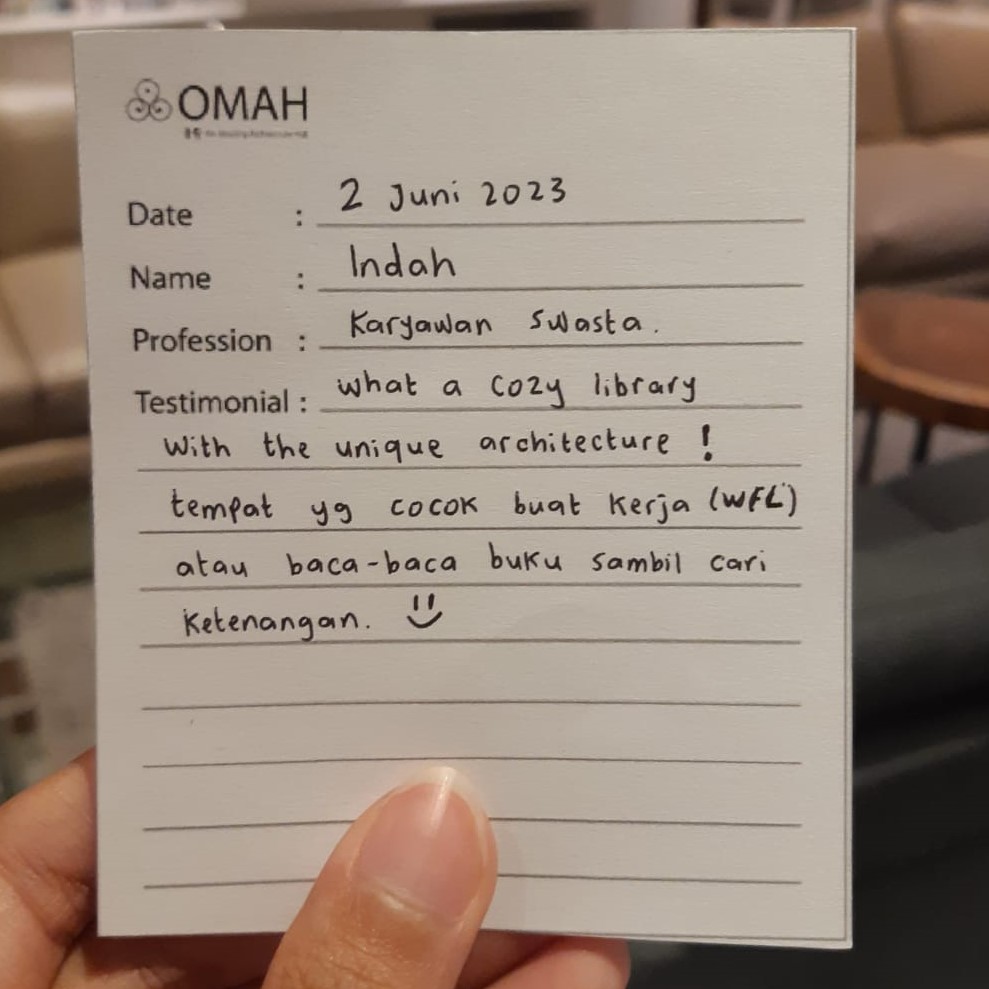 OMAH
Date : 2 Juni 2023
Name : Indah
Profession : Karyawan Swasta.
Testimonial : what a cozy library
with the unique architecture !
tempat yg cocok buat kerja (WFL)
atau baca-baca buku sambil cari
Ketenangan.